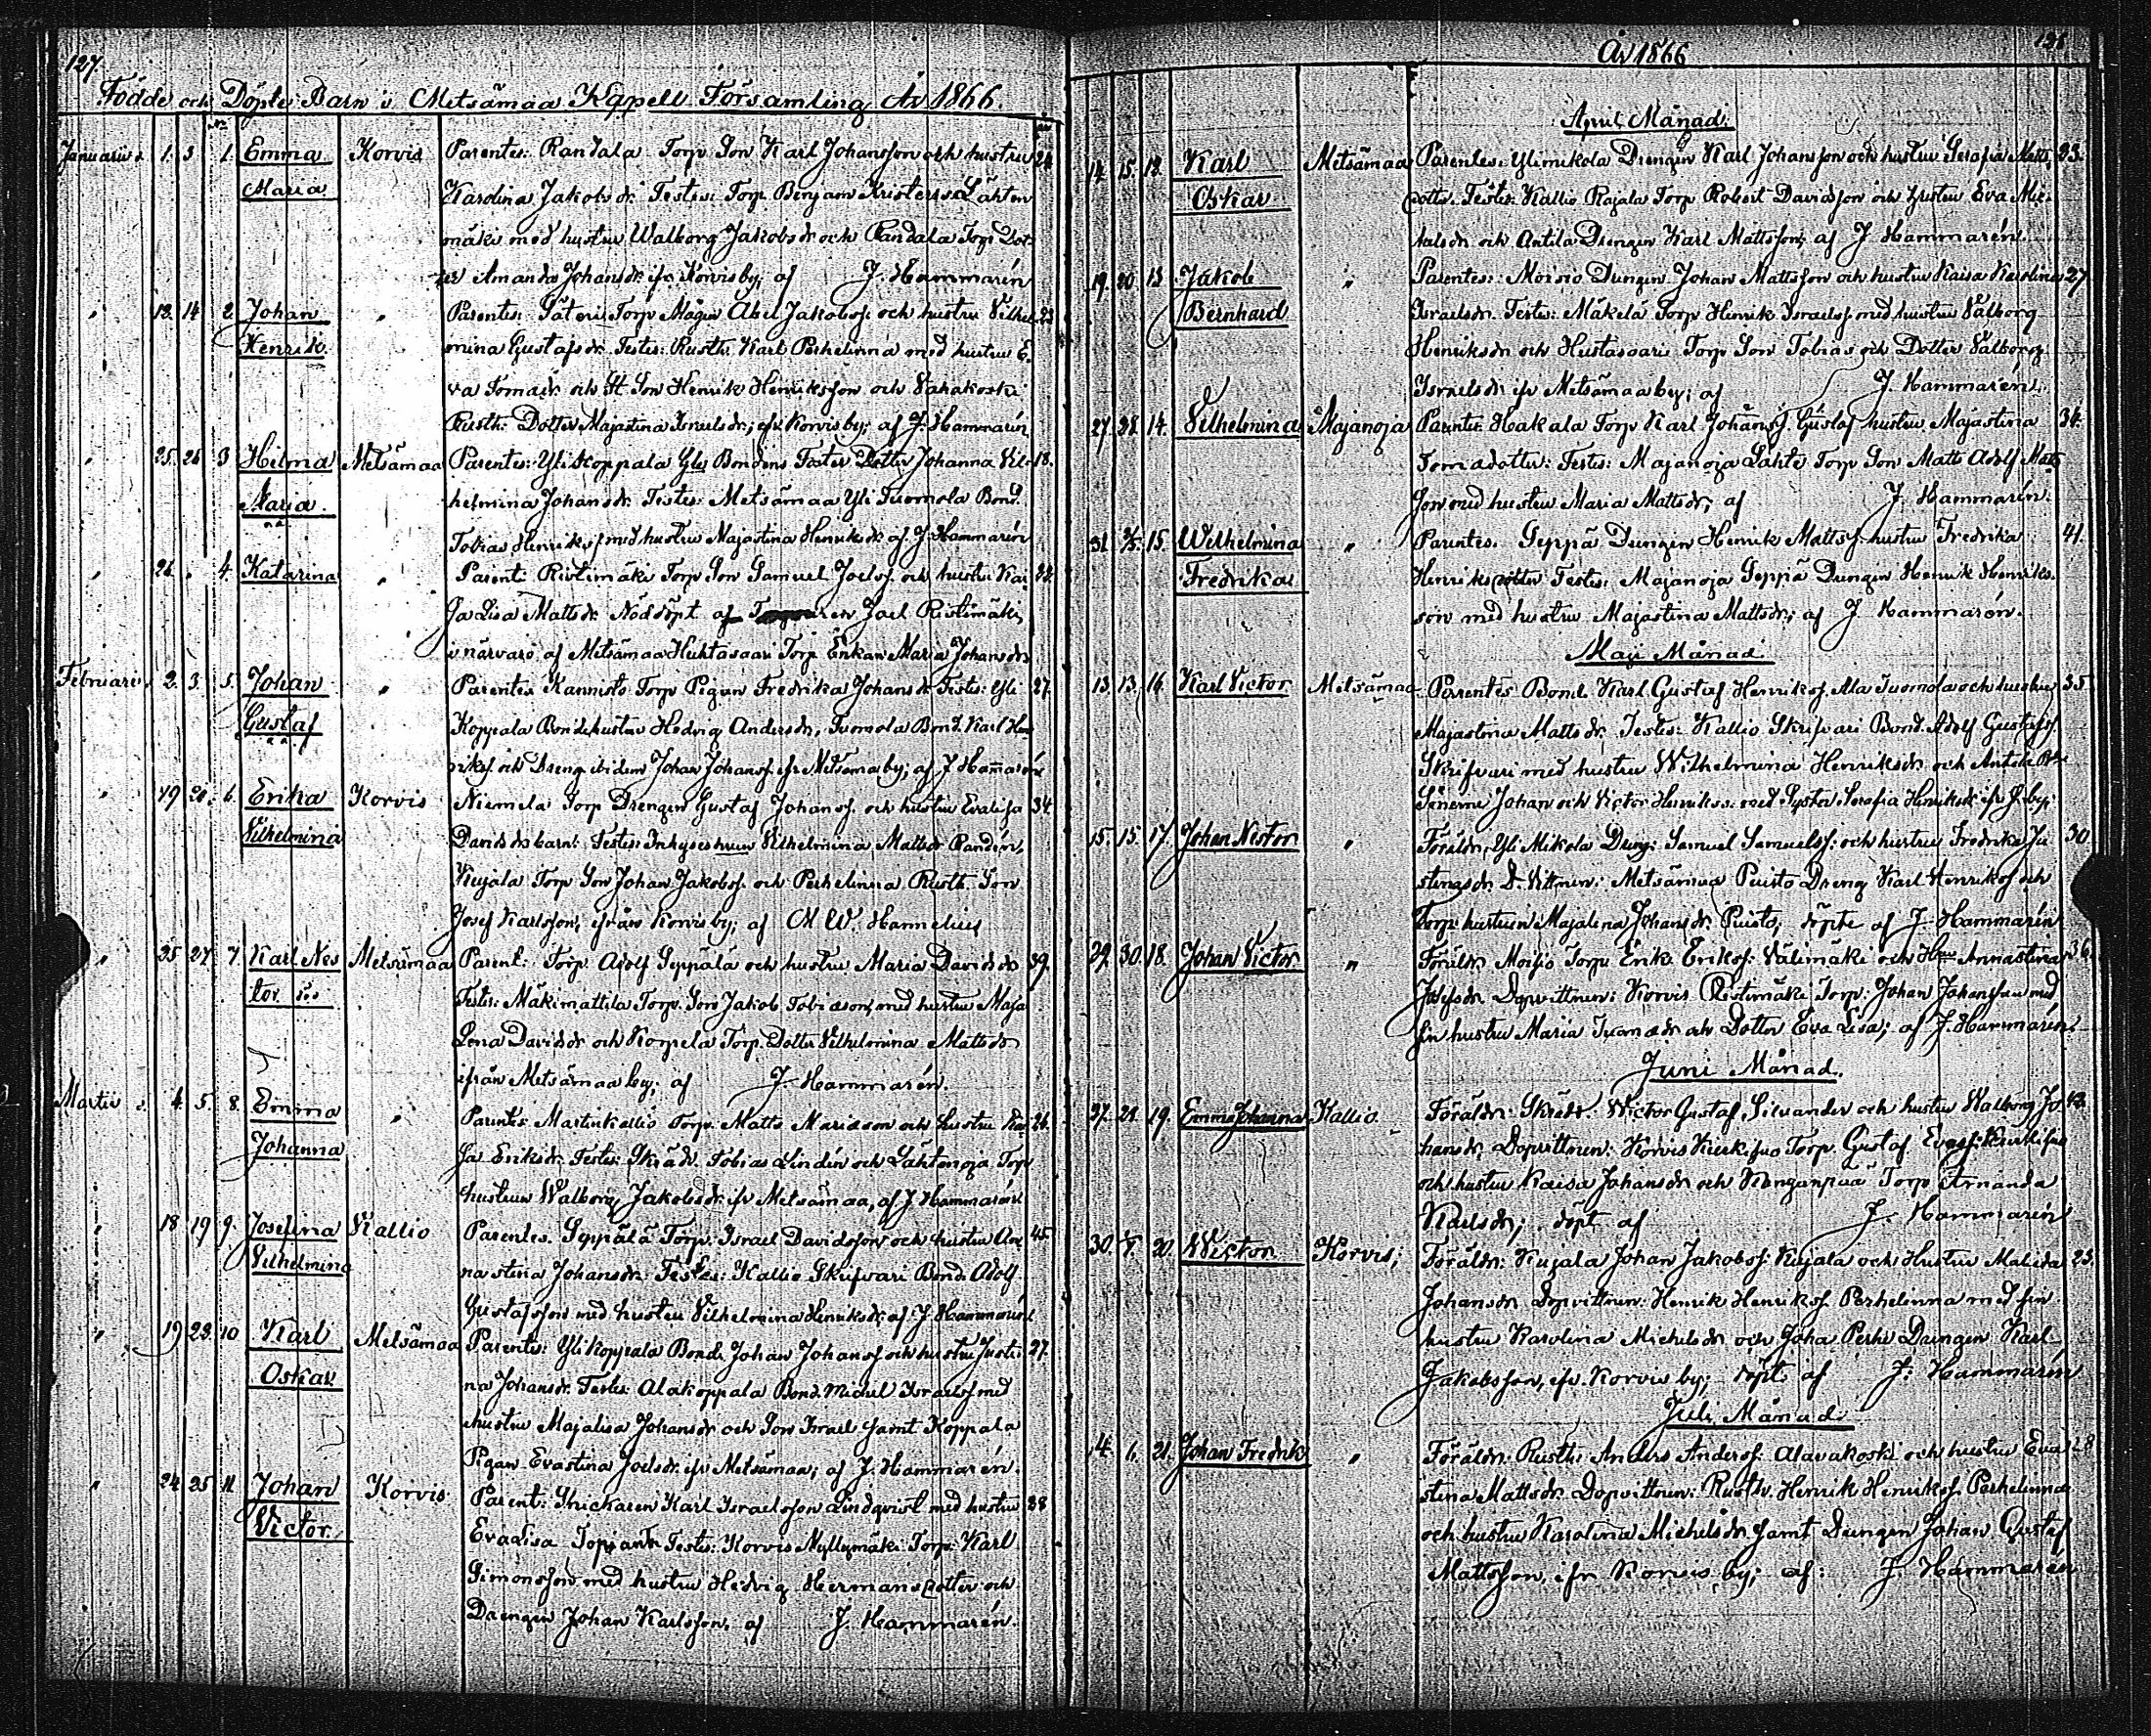 127
Födde och Döpte Barn i Metsämaa Kapell Församling År 1866.
Januarii 1. 3. 1. Emma Korvis Parentes: Randala Torp. Son Karl Johansson och hustru 24
Maria Karolina Jakobsdr. Testes: Torp. Benjam Kristerss Lähten
mäki med hustru Walborg Jakobsdr och Randala Torp Dot
ter Amanda Johansdr ifr Korvis by; af J. Hammarén
" 13. 14 2. Johan " Parentes: Torp Mågen Abel Jakobss. och hustru Vilhel 23
Henrik. mina Gustafsdr. Testes: Rusth. Karl Perhelinna med hustru E
va Tomasdr och St Son Henrik Henriksson och Vahakoski
Rusth: Dotter Majastina Israelsdr; ifr Korvis by; af J. Hammarén
" 25. 26 3 Hilma Metsämaa Parentes: Yli Koppala Bondens Foster Dotter Johanna Vil- 18.
Maria helmina Johansdr. Testes: Metsämaa Yli Tuomola Bond.
Tobias Henrikss med hustru Majastina Henriksdr af J. Hammarén
" 26 . 4. Katarina " Parent: Ristimäki Torp Son Samuel Joelss. och hustru Kai
sa Lisa Mattsdr. Nöddöpt af Joel Ristimäki,
i närvaro af Metsämaa Huhtasaari Torp Enkan Maria Johansdr
Februari 2. 3. 5. Johan " Parentes Kannisto Torp Pigan Fredrika Johansdr Testes: Yli 27.
Gustaf Koppala Bondehustru Hedvig Andersdr, Tuomola Bond. Karl Hen
rikss och Dreng ibidem Johan Johanss. ifr Metsämaa by; af J Hammarén
" 19 20. 6. Erika Korvis Niemela Torp Drengen Gustaf Johanss. och hustru Evalisa 34.
Vilhelmina Davidsdr barn: Testes: Inhyses hustru Vilhelmina Mattsdr Randén,
Kujala Torp Son Johan Jakobss. och Perhelinna Rusth. Son
Josef Karlsson, ifrån Korvis by; af M W. Hannelius
" 25 27. 7. Karl Nes Metsämaa Parent: Torp. Adolf Seppälä och hustru Maria Davidsdr 39.
tor Testes: Mäkimattila Torp. Son Jakob Tobiasson, med hustru Maja
Lena Davidsdr och Korpela Torp. Dotter Vilhelmina Mattsdr
ifrån Metsämaa by; af J. Hammarén.
Martii 4. 5. 8. Emma " Parentes Martinkallio Torp. Matts Mariasson och hustru Kai 26.
Johanna sa Eriksdr. Testes: Skräd. Tobias Lindén och Lähtenoja Torp
hustrun Walborg Jakobsdr. ifr Metsämaa, af J. Hammarén
" 18 19 9. Josefina Kallio Parentes. Seppälä Torp. Israel Davidsson och hustru An 45
Vilhelmina nastina Johansdr: Testes: Kallio Skrifvari Bond. Adolf
Gustafsson med hustru Vilhelmina Henriksdr; af J Hammarén
" 19 23. 10 Karl Metsämaa Parentes: Yli Koppala Bond. Johan Johanss och hustru Justi 27.
Oskar na Johansdr. Testes: Alakoppala Bond. Michel Israelss med
hustru Majalisa Johansdr och Son Israel samt Koppala
Pigan Evastina Joelsdr ifr Metsämaa; af J. Hammarén.
" 24 25 11. Johan Korvis Parent: Karl Israelsson Lindqvist med hustru 38
Victor. Evalisa Testes: Korvis Myllymäki Torp. Karl
Simonsson med hustru Hedvig Hermansdotter och
Drengen Johan Karlsson, af J. Hammarén.
År 1866
April Månad.
14. 15. 12. Karl Metsämaa Parentes: Ylimikola Drengen Karl Johansson och hustru Serafia Matts 23.
Oskar dotter. Testes: Kallio Rajala Torp Robert Davidsson och hustru Eva Mic
kelsdr och Antila Drengen Karl Mattsson; af J. Hammarén.
19. 20. 13 Jakob " Parentes: Moisio Drengen Johan Mattsson och hustru Kaisa Karolina 27
Bernhard Israelsdr. Testes: Mäkelä Torp Henrik Israelss. med hustru Valborg
Henriksdr och Huhtasaari Torp Son Tobias och Dotter Valborg
Israelsdr ifr Metsämaa by; af J. Hammarén.
27. 28. 14. Vilhelmina Majanoja Parentes: Hakala Torp Karl Johanss. Gustaf hustru Majastina 34.
Tomadotter: Testes: Majanoja Lahti Torp Son Matts Adolf Matts
son med hustru Maria Mattsdr; af J. Hammarén.
31. 15. Wilhelmina " Parentes. Seppä Drengen Henrik Mattss hustru Fredrika 41.
Fredrika Henriksdotter Testes: Majanoja Seppä Drengen Henrik Henriks
son med hustru Majastina Mattsdr; af J Hammarén.
Maji Månad.
13. 13. 16. Karl Victor Metsämaa Parentes Bond. Karl Gustaf Henrikss. Ala Tuomola och hustru 35
Majastina Mattsdr. Testes: Kallio Skrifvari Bond. Adolf Gustafss
Skrifvari med hustru Wilhelmina Henriksdr och Antila
Sönerne Johan och Victor Henrikss: med Syster Serafia Henriksdr ifr by;
15. 15. 17. Johan Nestor " Föräldr: Yli Mikola Dreng: Samuel Samuelss: och hustru Fredrika Ju 30
stinasdr D. Vittnen: Metsämaa Puisto Dreng Karl Henrikss och
Torp hustrun Majalena Johansdr Puisto, döpte af J. Hammarén
29. 30. 18. Johan Victor " Föräldr Moisio Torp Erik Erikss: Välimäki och Annastina 36
Josefsdr. Dopvittnen: Korvis Ristimäki Torp: Johan Johansson med
sin hustru Maria Tuomasdr och Dotter Eva Lisa; af J. Hammarén
Juni Månad.
27. 28. 19. Emma Johanna Kallio. Föräldr: Skrädr. Victor Gustaf Silvander och hustru Walborg Jo
hansdr, Dopvittnen: Korvis Torp. Gustaf
och hustru Kaisa Johansdr och Kanganpää Torp Amanda
Karlsdr; döpt af J. Hammarén
30. 20. Victor Korvis; Föräldr: Kujala Johan Jakobss: Kujala och Hustru Matilda 23.
Johansdr Dopvittnen: Henrik Henrikss. Perhelinna med sin
hustru Karolina Michelsdr och Drengen Karl
Jakobsson, ifr. Korvis by; döpt af J. Hammarén
Juli Månad
4. 6. 21. Johan Fredrik " Föräldr: Rusth: Anders Anderss. Alavakoski och hustru Eva 28
stina Mattsdr. Dopvittnen: Rusth. Henrik Henrikss. Perhelinna
och hustru Karolina Michelsdr samt Drengen Johan Gustaf
Mattsson, ifr Korvis by; af: J. Hammarén